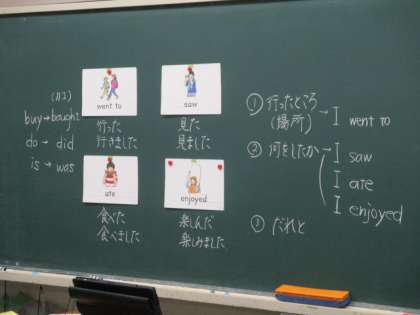 buy→bought
do → did
is → was
went to
行った
行きました
saw
見た
見ました
ate
食べた
食べました
enjoyed
楽しんだ
楽しみました
① 行ったところ
(場所) → I went to
② 何をしたか → I saw
I ate
I enjoyed
③ だれと